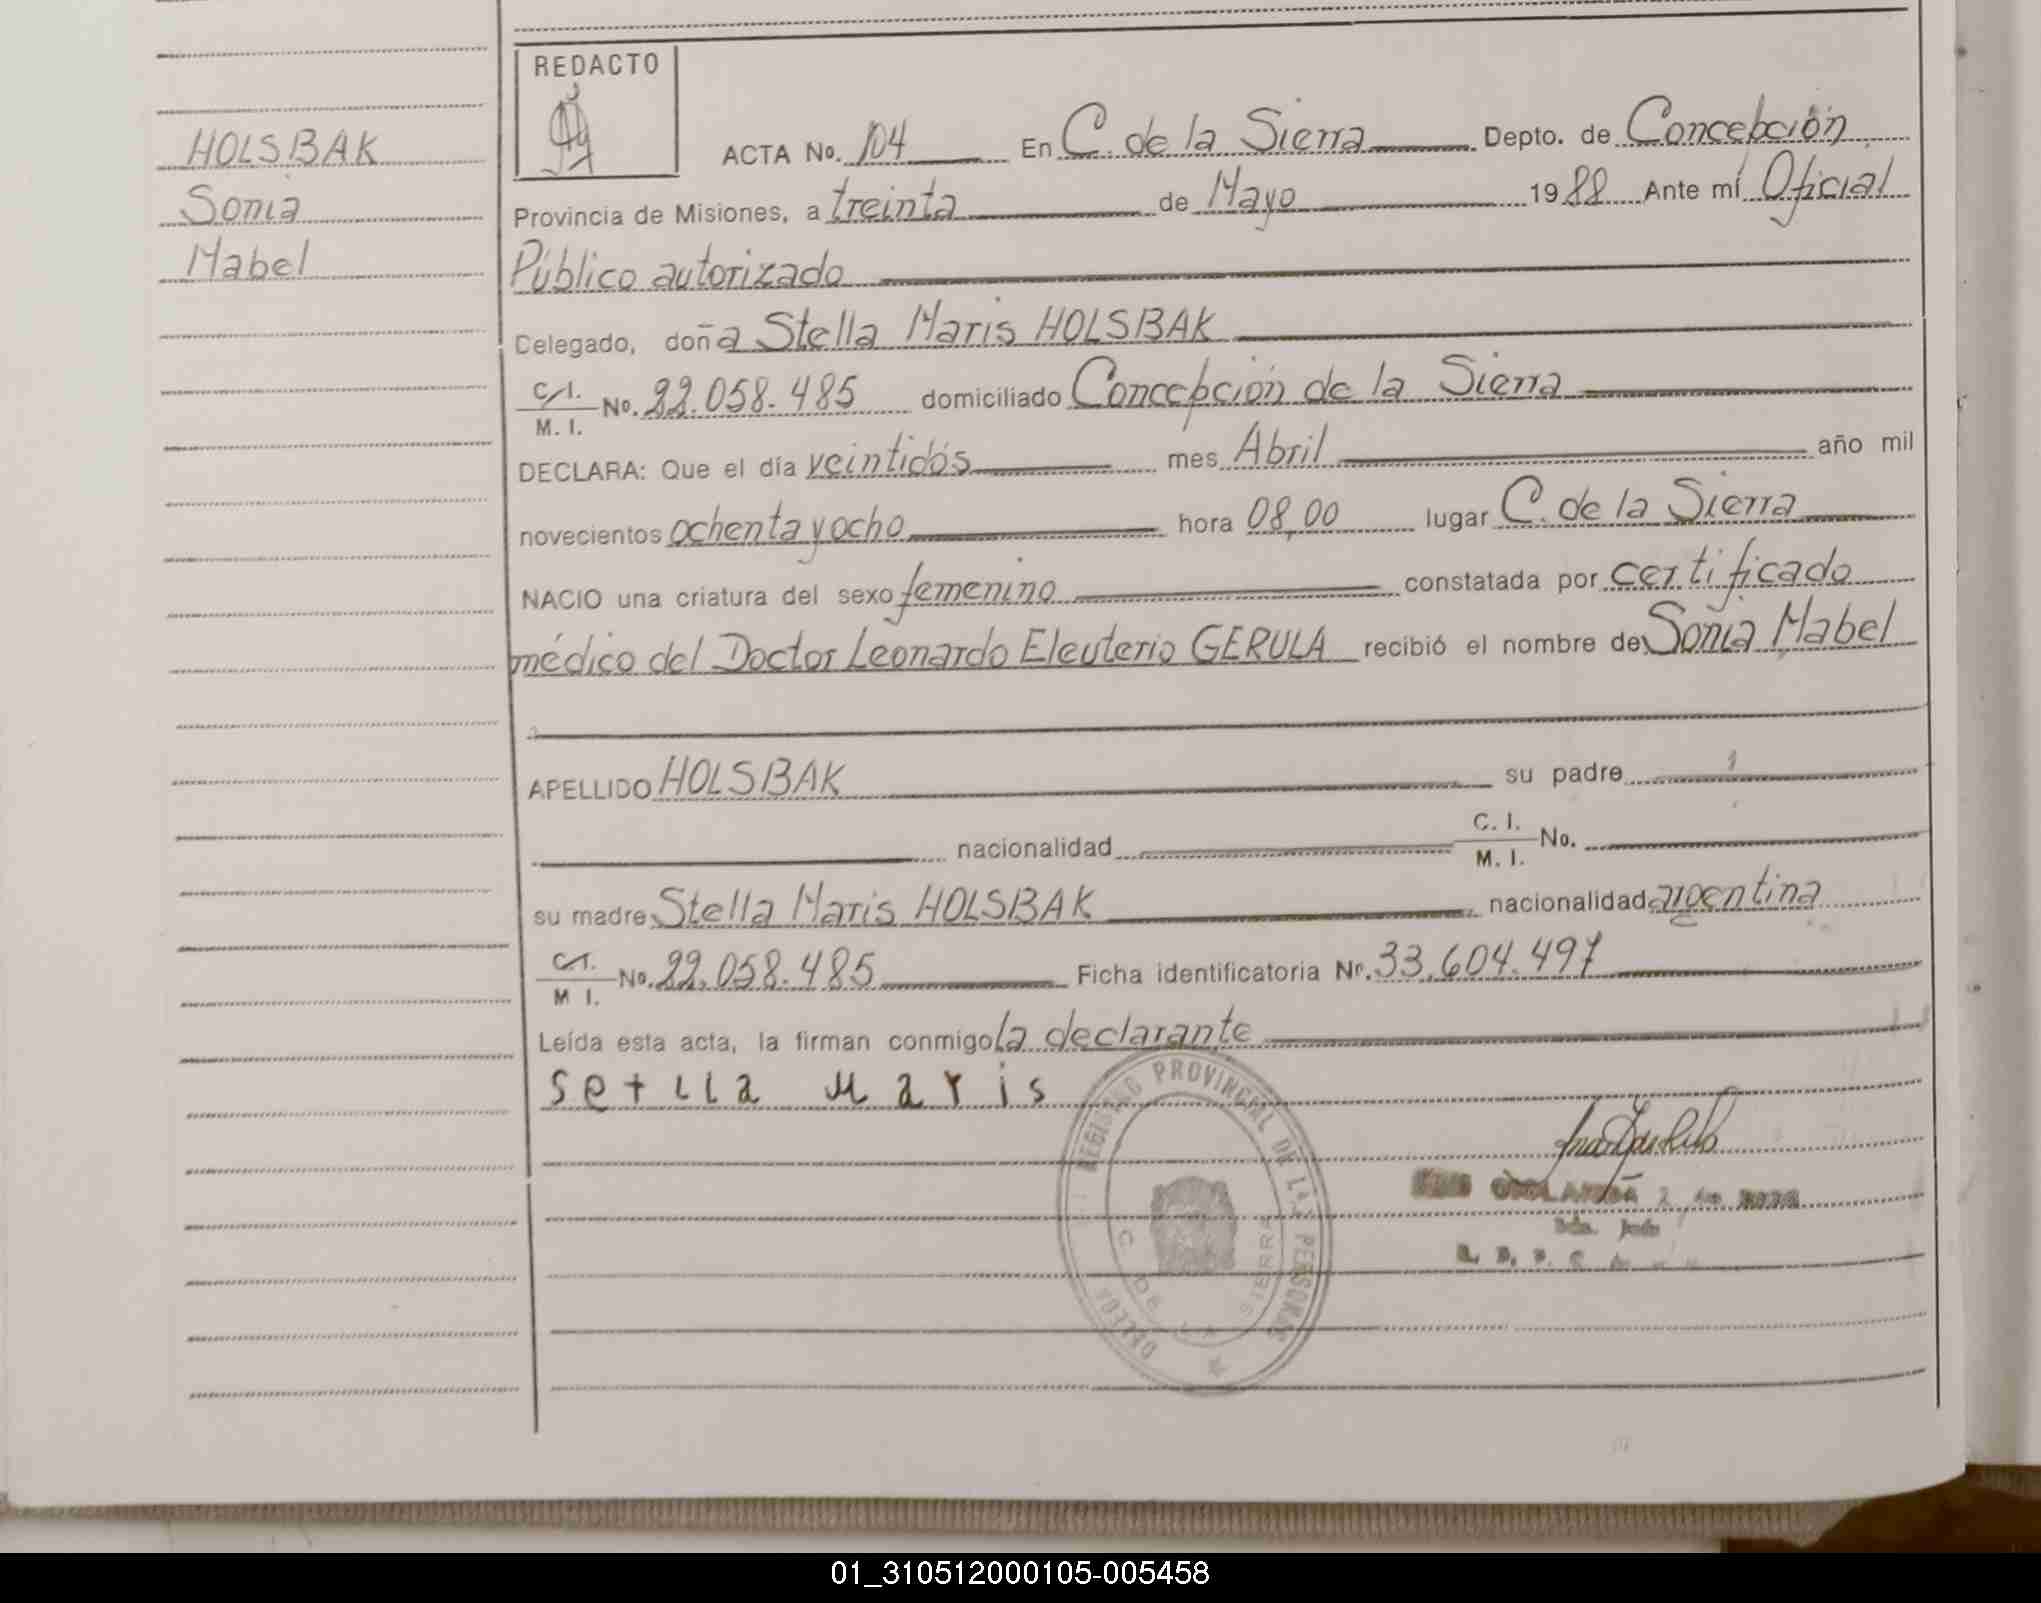 HOLSBAK
Sonia
Mabel
REDACTO
ACTA No. 104 En C. de la Sierra Depto. de Concepción
Provincia de Misiones, a treinta de Mayo 1988 Ante mí Oficial
Público autorizado
Delegado, doña Stella Maris HOLSBAK
C/I.
M. I.
No. 22.058.485 domiciliado Concepción de la Sierra
DECLARA: Que el día veintidós mes Abril año mil
novecientos ochenta y ocho hora 08,00 lugar C. de la Sierra
NACIO una criatura del sexo femenino constatada por certificado
médico del Doctor Leonardo Eleuterio GERULA recibió el nombre de Sonia Mabel
APELLIDO HOLSBAK su padre
nacionalidad C. I.
M. I.
No.
su madre Stella Maris HOLSBAK nacionalidad argentina
C.I.
M I.
No. 22.058.485 Ficha identificatoria Nº. 33.604.497
Leída esta acta, la firman conmigo la declarante
setlla Maris
REGISTRO PROVINCIAL DE LAS PERSONAS
C. DE LA SIERRA
01_310512000105-005458